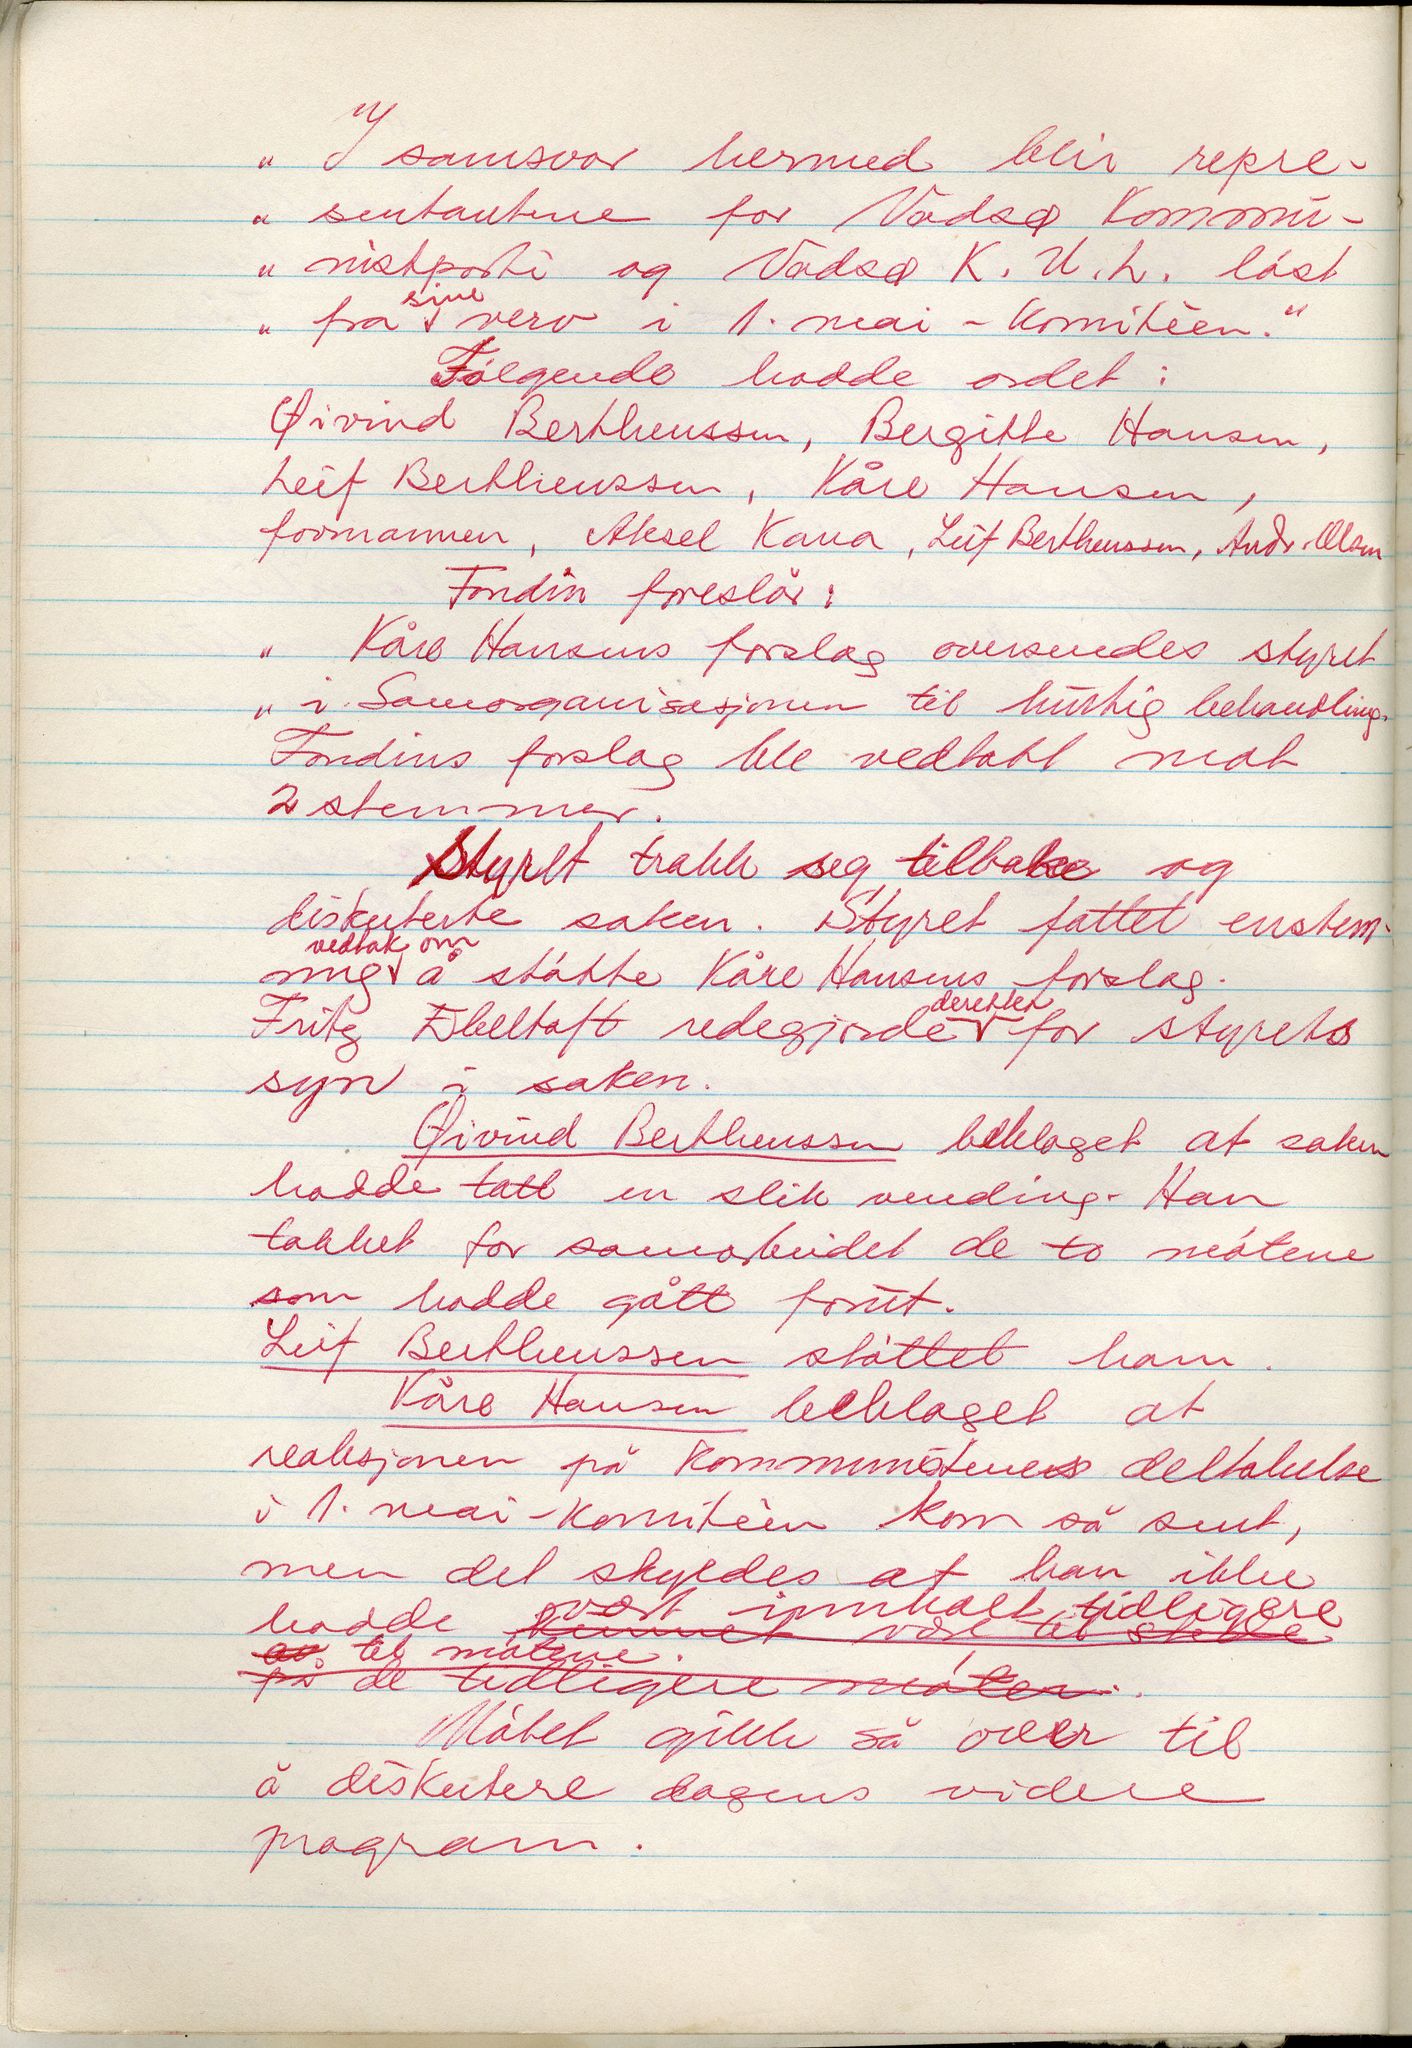 " I samsvar hermed blir repre-
" sentantene for Vadsø Kommu-
" nistparti og Vadsø K.U.L. løst
" fra sine verv i 1. mai-komitéen."
Følgende hadde ordet:
Øivind Bertheussen, Bergitte Hansen,
Leif Bertheussen, Kåre Hansen,
formannen, Aksel Kana, Leif Bertheussen, Andr. Olsen
Fondin foreslår:
" Kåre Hansens forslag oversendes styret
" i Samorganisasjonen til hurtig behandling.
Fondins forslag ble vedtatt mot
2 stemmer.
Styret trakk seg tilbake og
diskuterte saken. Styret fattet enstem-
mig vedtak om å støtte Kåre Hansens forslag.
Fritz Ebeltoft redegjorde deretter for styrets
syn i saken.
Øivind Bertheussen beklaget at saken
hadde tatt en slik vending. Han
takket for samarbeidet de to møtene
som hadde gått forut.
Leif Bertheussen støttet ham.
Kåre Hansen beklaget at
reaksjonen på kommunistenes deltakelse
i 1. mai-komitéen kom så sent,
men det skyldes at han ikke
vært innkalt tidligere
hadde kunnet være til stede
til møtene.
på de tidligere møter.
Møtet gikk så over til
å diskutere dagens videre
program.